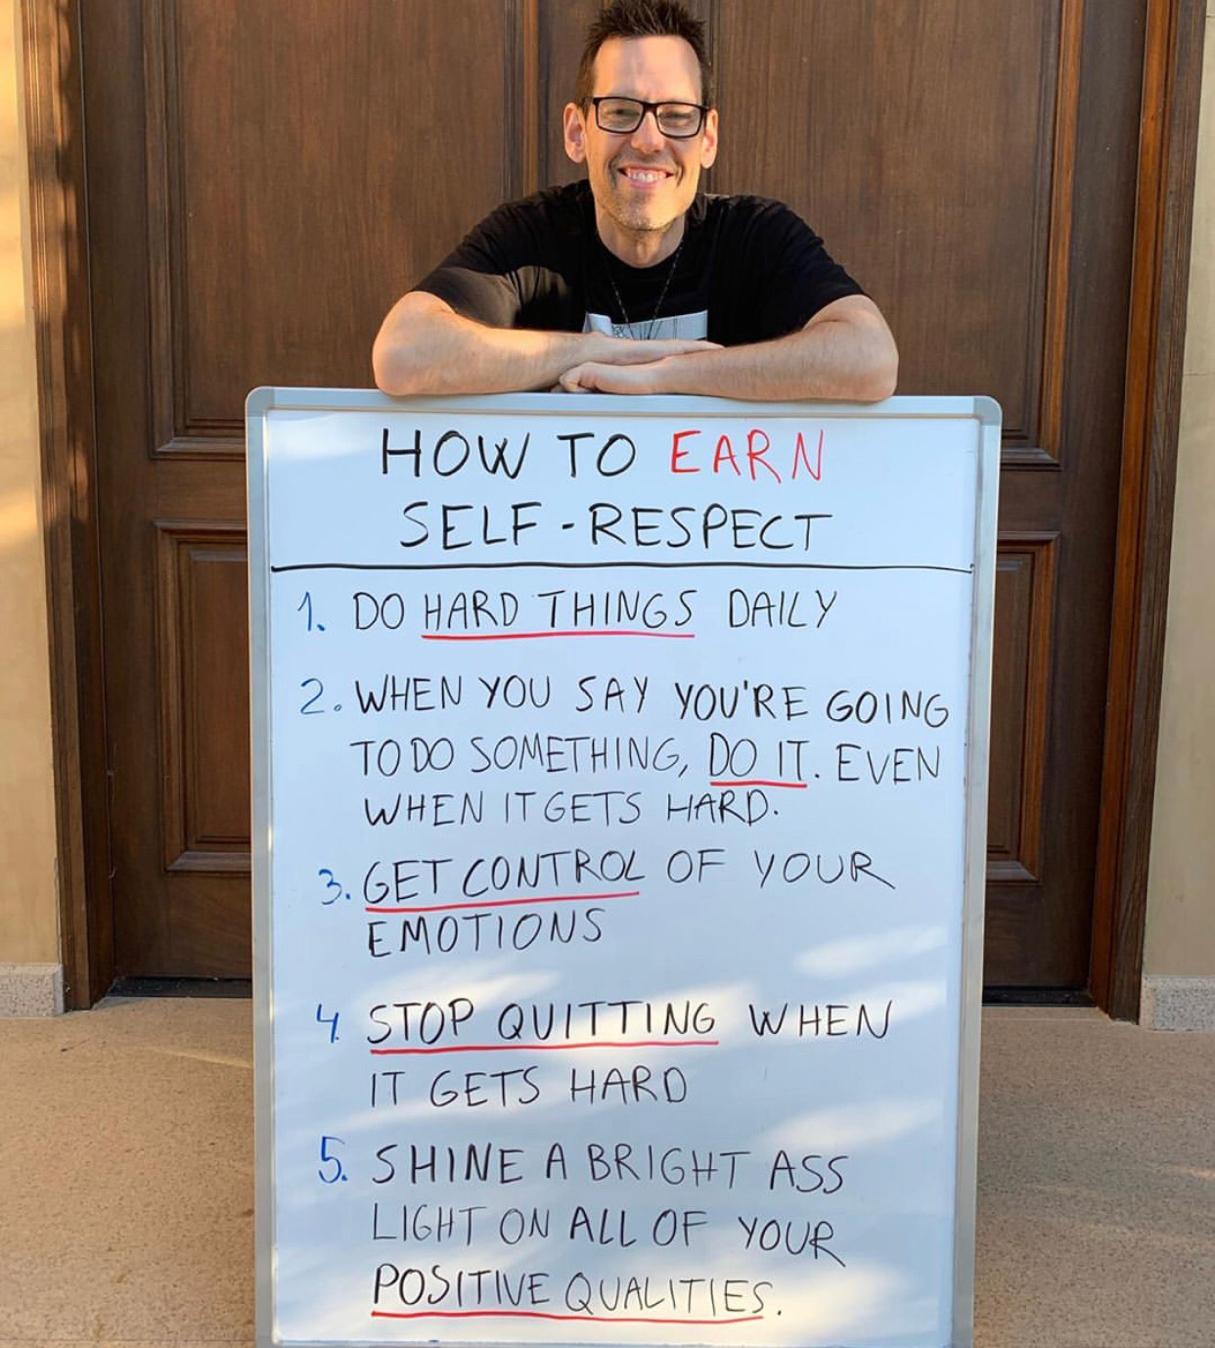 HOW TO EARN
SELF-RESPECT
1. DO HARD THINGS DAILY
2. WHEN YOU SAY YOU'RE GOING
TO DO SOMETHING, DO IT. EVEN
WHEN IT GETS HARD.
3. GET CONTROL OF YOUR
EMOTIONS
4. STOP QUITTING WHEN
IT GETS HARD
5. SHINE A BRIGHT ASS
LIGHT ON ALL OF YOUR
POSITIVE QUALITIES.